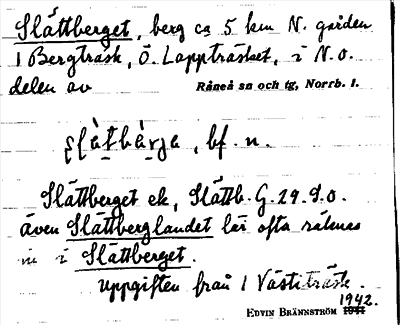 Slättberget, berg ca 5 km N. gården
1 Bergträsk, Ö. Lappträsket, i N.O.
delen av Råneå sn och tg, Norrb. l.
bf. n.
Slättberget ek, Slättb. G. 29. S.O.
även Slättberglandet lär ofta räknas
in i Slättberget.
Uppgiften från 1 Västiträsk.
EDVIN BRÄNNSTRÖM 1942.